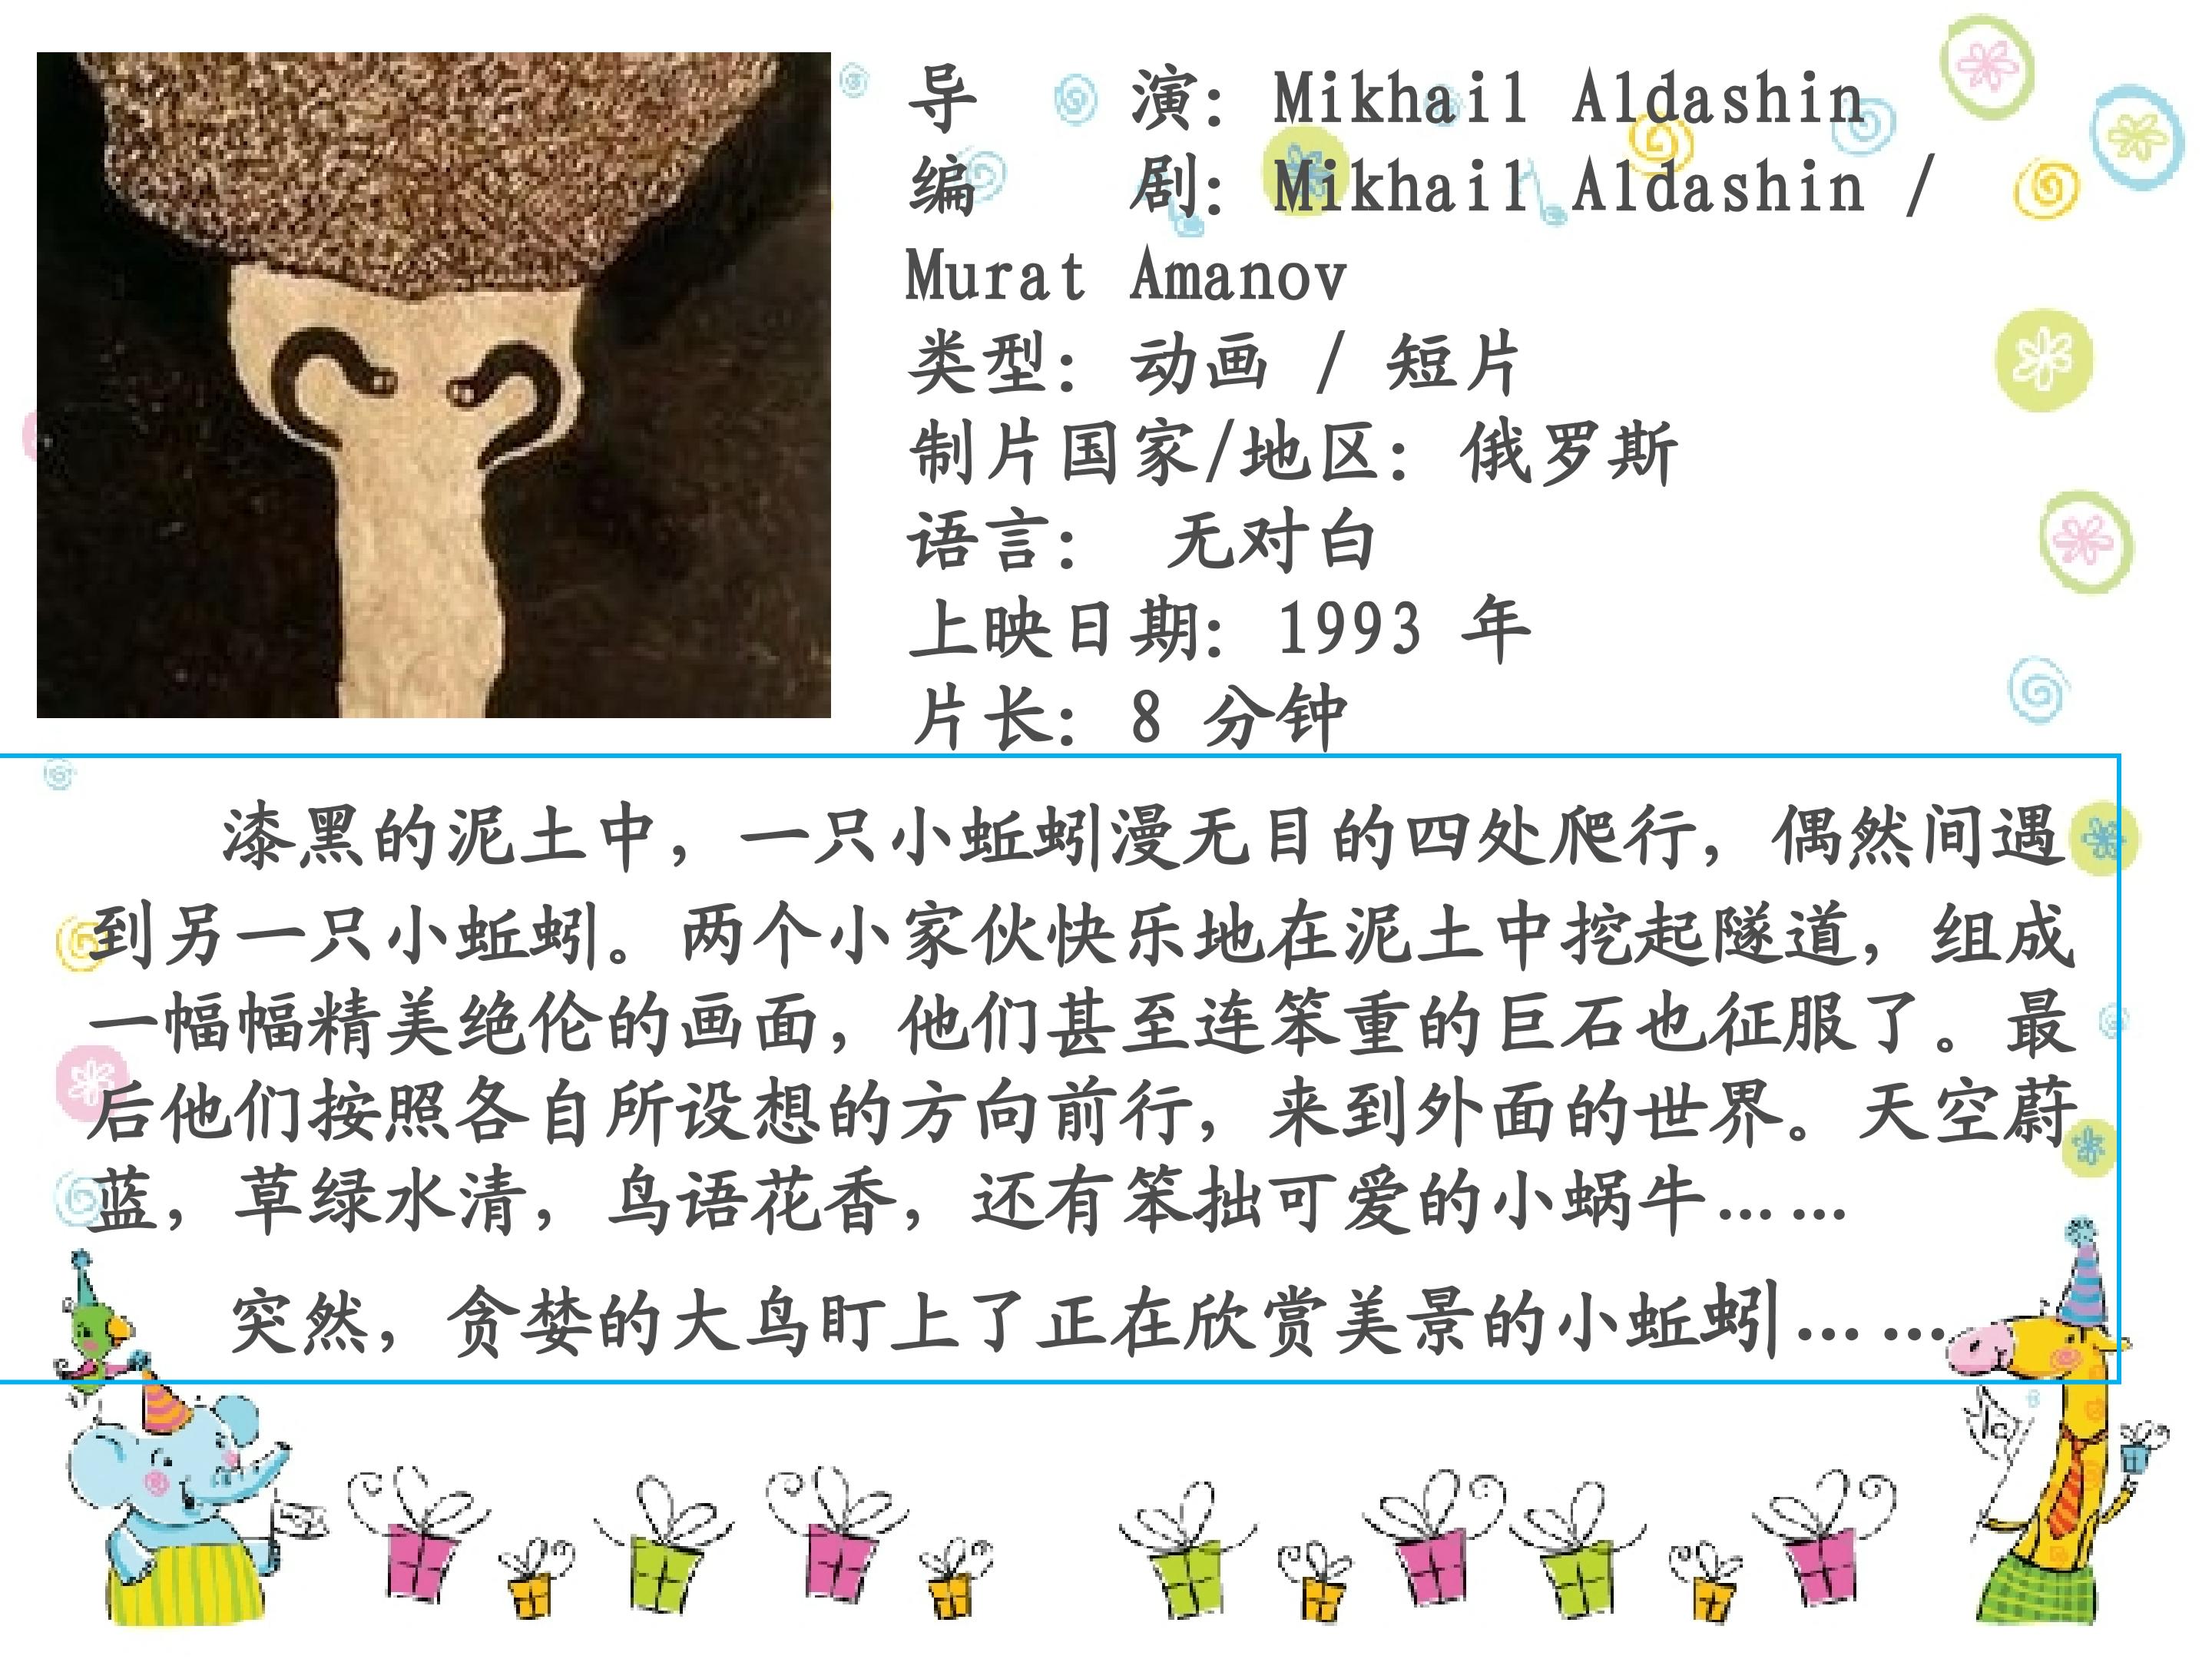 导 演：Mikhail Aldashin
编 剧：Mikhail Aldashin /
Murat Amanov
类型：动画 / 短片
制片国家/地区：俄罗斯
语言： 无对白
上映日期：1993 年
片长：8 分钟
漆黑的泥土中，一只小蚯蚓漫无目的四处爬行，偶然间遇
到另一只小蚯蚓。两个小家伙快乐地在泥土中挖起隧道，组成
一幅幅精美绝伦的画面，他们甚至连笨重的巨石也征服了。最
后他们按照各自所设想的方向前行，来到外面的世界。天空蔚
蓝，草绿水清，鸟语花香，还有笨拙可爱的小蜗牛……
突然，贪婪的大鸟盯上了正在欣赏美景的小蚯蚓……